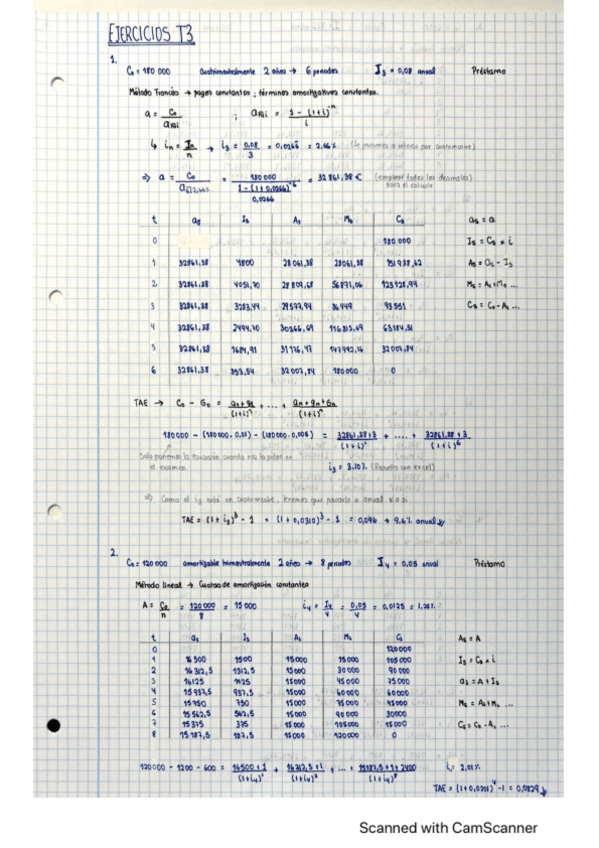 EJERCICIOS T3
1.
C₀ = 180 000 Cuatrimestralmente 2 años → 6 periodos I₃ = 0,08 anual Préstamo
Método Francés → pagos constantes ; términos amortizativos constantes.
a = C₀ / a n¬i ; a n¬i = (1 - (1+i)⁻ⁿ) / i
↳ iₙ = Iₙ / n → i₃ = 0,08 / 3 = 0,0266 = 2,66% (Lo pasamos a interés por cuatrimestre)
⇒ a = C₀ / a 6¬2,66% = 180 000 / ((1 - (1+0,0266)⁻⁶) / 0,0266) = 32 861,38 € (emplear todos los decimales para el cálculo)
t as Is As Ms Cs as = a
0 180 000 Is = Cs × i
1 32861,38 4800 28 061,38 28061,38 151 938,62 As = as - Is
2 32861,38 4051,70 28 809,68 56871,06 123 128,94 Ms = A₁+M₀ ...
3 32861,38 3283,44 29577,94 86449 93 551 Cs = C₀ - A₁ ...
4 32861,38 2494,70 30366,69 116 815,69 63184,31
5 32861,38 1684,91 31 176,47 147 992,16 32 007,84
6 32861,38 853,54 32 007,84 180 000 0
TAE → C₀ - G₀ = (a₁ + g₁) / (1+i)¹ + ... + (aₙ + gₙ + Gₙ) / (1+i)ⁿ
180 000 - (180 000 · 0,01) - (180 000 · 0,005) = (32861,38 + 3) / (1+i)¹ + .... + (32 861,38 + 3) / (1+i)⁶
Solo ponemos la ecuación cuando nos la piden en el examen
i₃ = 3,10% (Resuelto con excel)
⇒ Como el i₃ está en cuatrimestre, tenemos que pasarlo a anual
TAE = (1 + i₃)³ - 1 = (1 + 0,0310)³ - 1 = 0,096 → 9,6% anual
2.
C₀ = 120 000 amortizable trimestralmente 2 años → 8 periodos I₄ = 0,05 anual Préstamo
Método lineal → Cuotas de amortización constantes
A = C₀ / n = 120 000 / 8 = 15 000 i₄ = I₄ / 4 = 0,05 / 4 = 0,0125 = 1,25%
t as Is As Ms Cs As = A
0 120 000
1 16 500 1500 15 000 15 000 105 000 Is = Cs × i
2 16 312,5 1312,5 15000 30 000 90 000
3 16125 1125 15000 45 000 75 000 as = A + Is
4 15 937,5 937,5 15000 60 000 60000
5 15 750 750 15000 75 000 45000 Ms = A₁+M₀ ...
6 15 562,5 562,5 15000 90 000 30000
7 15 375 375 15 000 105000 15 000 Cs = C₀ - A₁ ...
8 15 187,5 187,5 15 000 120000 0
120 000 - 1200 - 600 = (16500 + 1) / (1+i₄)¹ + (16 312,5 + 1) / (1+i₄)² + ... + (15187,5 + 1 + 2400) / (1+i₄)⁸ i₄ = 2,01%
TAE = (1 + 0,0201)⁴ - 1 = 0,0829
Scanned with CamScanner